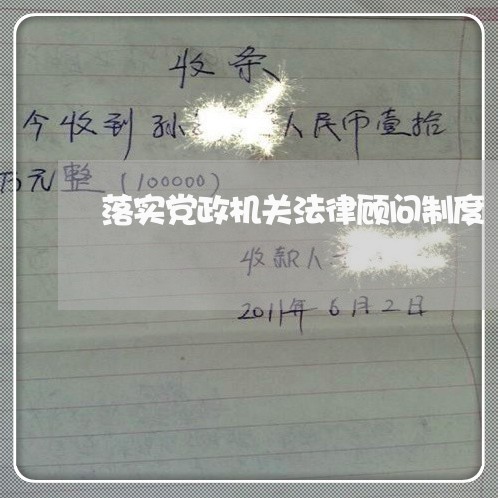 收条
今收到孙 人民币壹拾
万元整（100000）
落实党政机关法律顾问制度
收款人
2011年6月2日